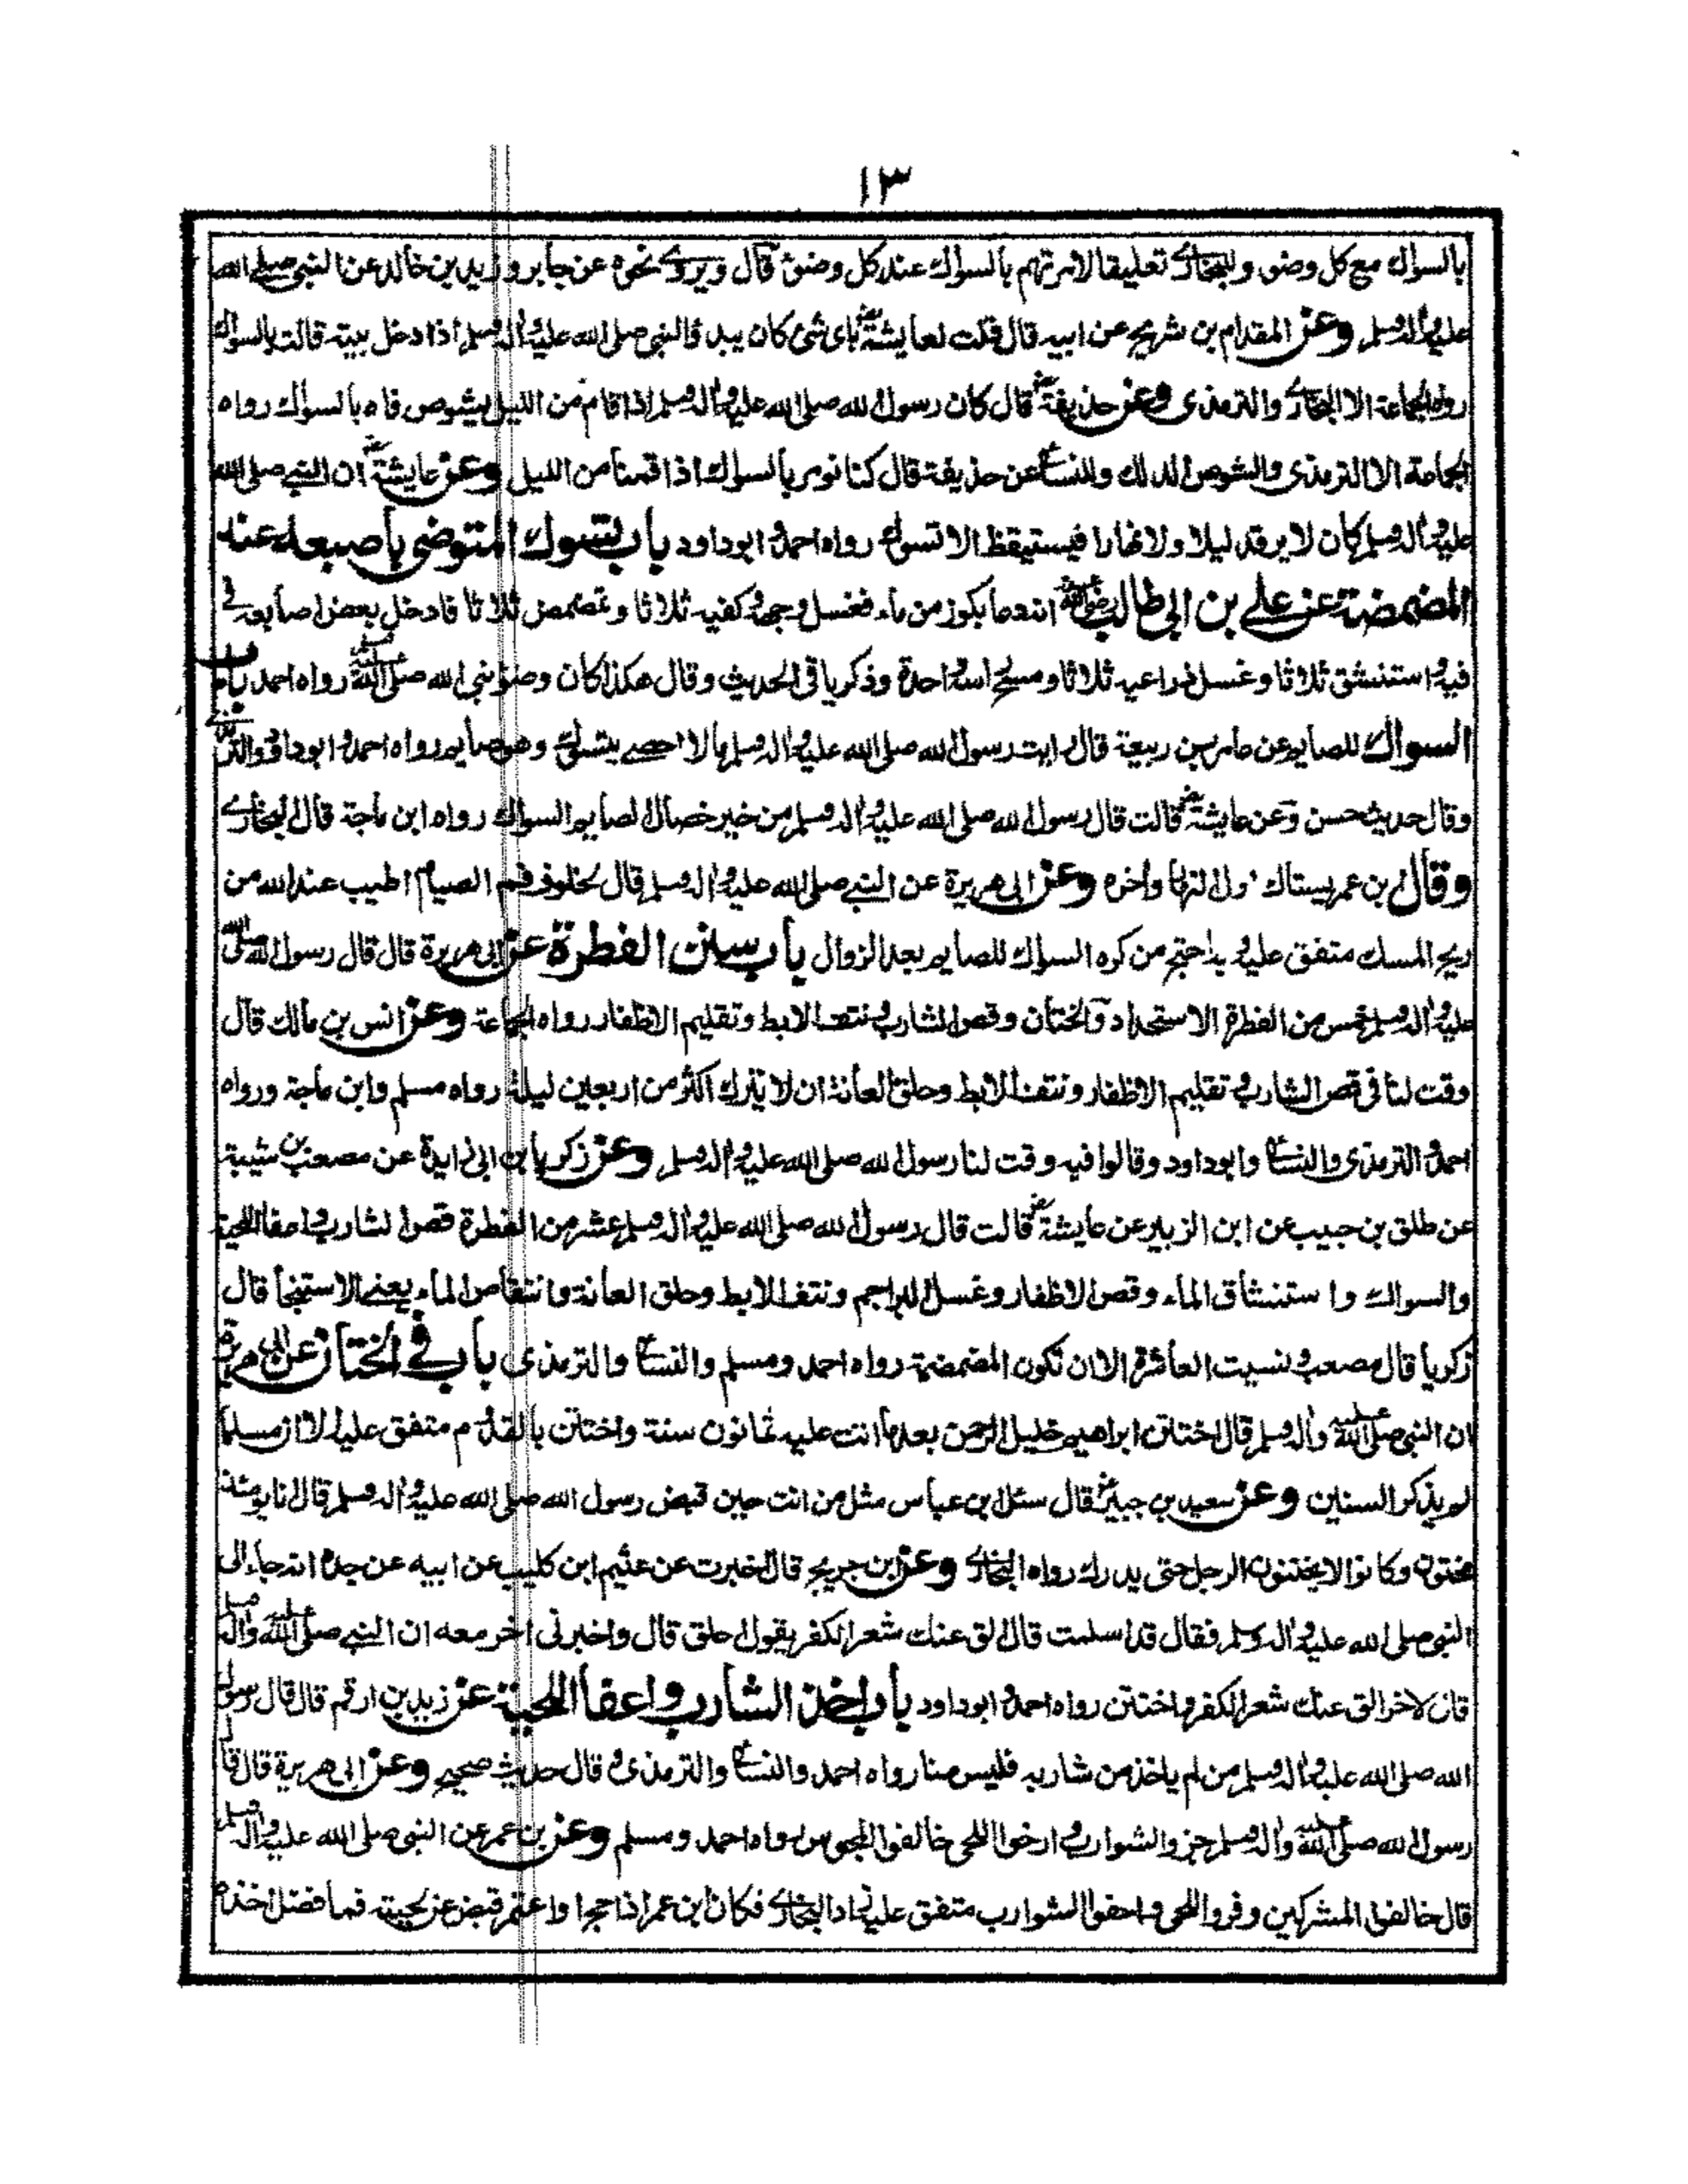 ١٣
بالسواك مع كل وضوء وللبخاري تعليقا لامرتهم بالسواك عند كل وضوء قال ويروى نحوه عن جابر وزيد بن خالد عن النبي صلى الله
عليه واله وسلم وعن المقدام بن شريح عن ابيه قال قلت لعايشة رض باى شئ كان يبدؤ النبي صلى الله عليه واله وسلم اذا دخل بيته قالت بالسواك
رواه الجماعة الا البخاري والترمذى وعن حذيفة رض قال كان رسول الله صلى الله عليه واله وسلم اذا قام من الليل يشوص فاه بالسواك رواه
الجماعة الا الترمذى والشوص الدلك وللنسائى عن حذيفة قال كنا نومر بالسواك اذا قمنا من الليل وعن عايشة رض ان النبي صلى الله
عليه واله وسلم كان لا يرقد ليلا ولا نهارا فيستيقظ الا تسوك رواه احمد وابو داود باب تسوك المتوضى باصبعه عند
المضمضة عن علي بن ابي طالب رضى الله عنه انه دعا بكوز من ماء فغسل وجهه وكفيه ثلاثا وتمضمض ثلاثا فادخل بعض اصابعه في
فيه واستنشق ثلاثا وغسل ذراعيه ثلاثا ومسح راسه واحدة وذكر باقي الحديث وقال هكذا كان وضوء نبي الله صلى الله عليه وسلم رواه احمد باب
السواك للصايم عن عامر بن ربيعة قال رايت رسول الله صلى الله عليه واله وسلم مالا احصي يتسوك وهو صايم رواه احمد وابو داود والترمذي
وقال حديث حسن وعن عايشة رض قالت قال رسول الله صلى الله عليه واله وسلم من خير خصال الصايم السواك رواه ابن ماجة قال البخاري
وقال ابن عمر يستاك اول النهار واخره وعن ابى هريرة عن النبي صلى الله عليه واله وسلم قال لخلوف فم الصيام اطيب عند الله من
ريح المسك متفق عليه وبه احتج من كره السواك للصايم بعد الزوال باب سنن الفطرة عن ابي هريرة قال قال رسول الله صلى الله
عليه واله وسلم خمس من الفطرة الاستحداد والختان وقص الشارب ونتف الابط وتقليم الاظفار رواه الجماعة وعن انس بن مالك قال
وقت لنا في قص الشارب وتقليم الاظفار ونتف الابط وحلق العانة ان لا نترك اكثر من اربعين ليلة رواه مسلم وابن ماجة ورواه
احمد والترمذى والنسائى وابو داود وقالوا فيه وقت لنا رسول الله صلى الله عليه واله وسلم وعن زكريا بن ابي زايدة عن مصعب بن شيبة
عن طلق بن حبيب عن ابن الزبير عن عايشة رض قالت قال رسول الله صلى الله عليه واله وسلم عشر من الفطرة قص الشارب واعفا اللحية
والسواك وا ستنشاق الماء وقص الاظفار وغسل البراجم ونتف الابط وحلق العانة وانتقاص الماء يعني الاستنجأ قال
زكريا قال مصعب ونسيت العاشرة الا ان تكون المضمضة رواه احمد ومسلم والنسائى والترمذى باب في الختان عن ابي هريرة
ان النبي صلى الله عليه واله وسلم قال اختتن ابراهيم خليل الرحمن بعد ما اتت عليه ثمانون سنة واختتن بالقدوم متفق عليه الا ان مسلما
لم يذكر السنين وعن سعيد بن جبير رض قال سئل ابن عباس مثل من انت حين قبض رسول الله صلى الله عليه واله وسلم قال انا يومئذ
مختون وكانوا لا يختنون الرجل حتى يدرك رواه البخاري وعن ابن جريج قال اخبرت عن عثيم ابن كليب عن ابيه عن جده انه جاء الى
النبي صلى الله عليه واله وسلم فقال قد اسلمت قال الق عنك شعر الكفر يقول احلق قال واخبرنى اخر معه ان النبي صلى الله عليه واله وسلم
قال لاخر الق عنك شعر الكفر واختتن رواه احمد وابو داود باب اخذ الشارب واعفأ اللحية عن زيد بن ارقم قال قال رسول
الله صلى الله عليه واله وسلم من لم ياخذ من شاربه فليس منا رواه احمد والنسائى والترمذى وقال حديث صحيح وعن ابى هريرة قال قال
رسول الله صلى الله عليه واله وسلم جزوا الشوارب وارخوا اللحى خالفوا المجوس رواه احمد ومسلم وعن بن عمر عن النبي صلى الله عليه واله وسلم
قال خالفوا المشركين وفروا اللحى واحفوا الشوارب متفق عليه زاد البخاري فكان ابن عمر اذا حج او اعتمر قبض عن لحيته فما فضل اخذه